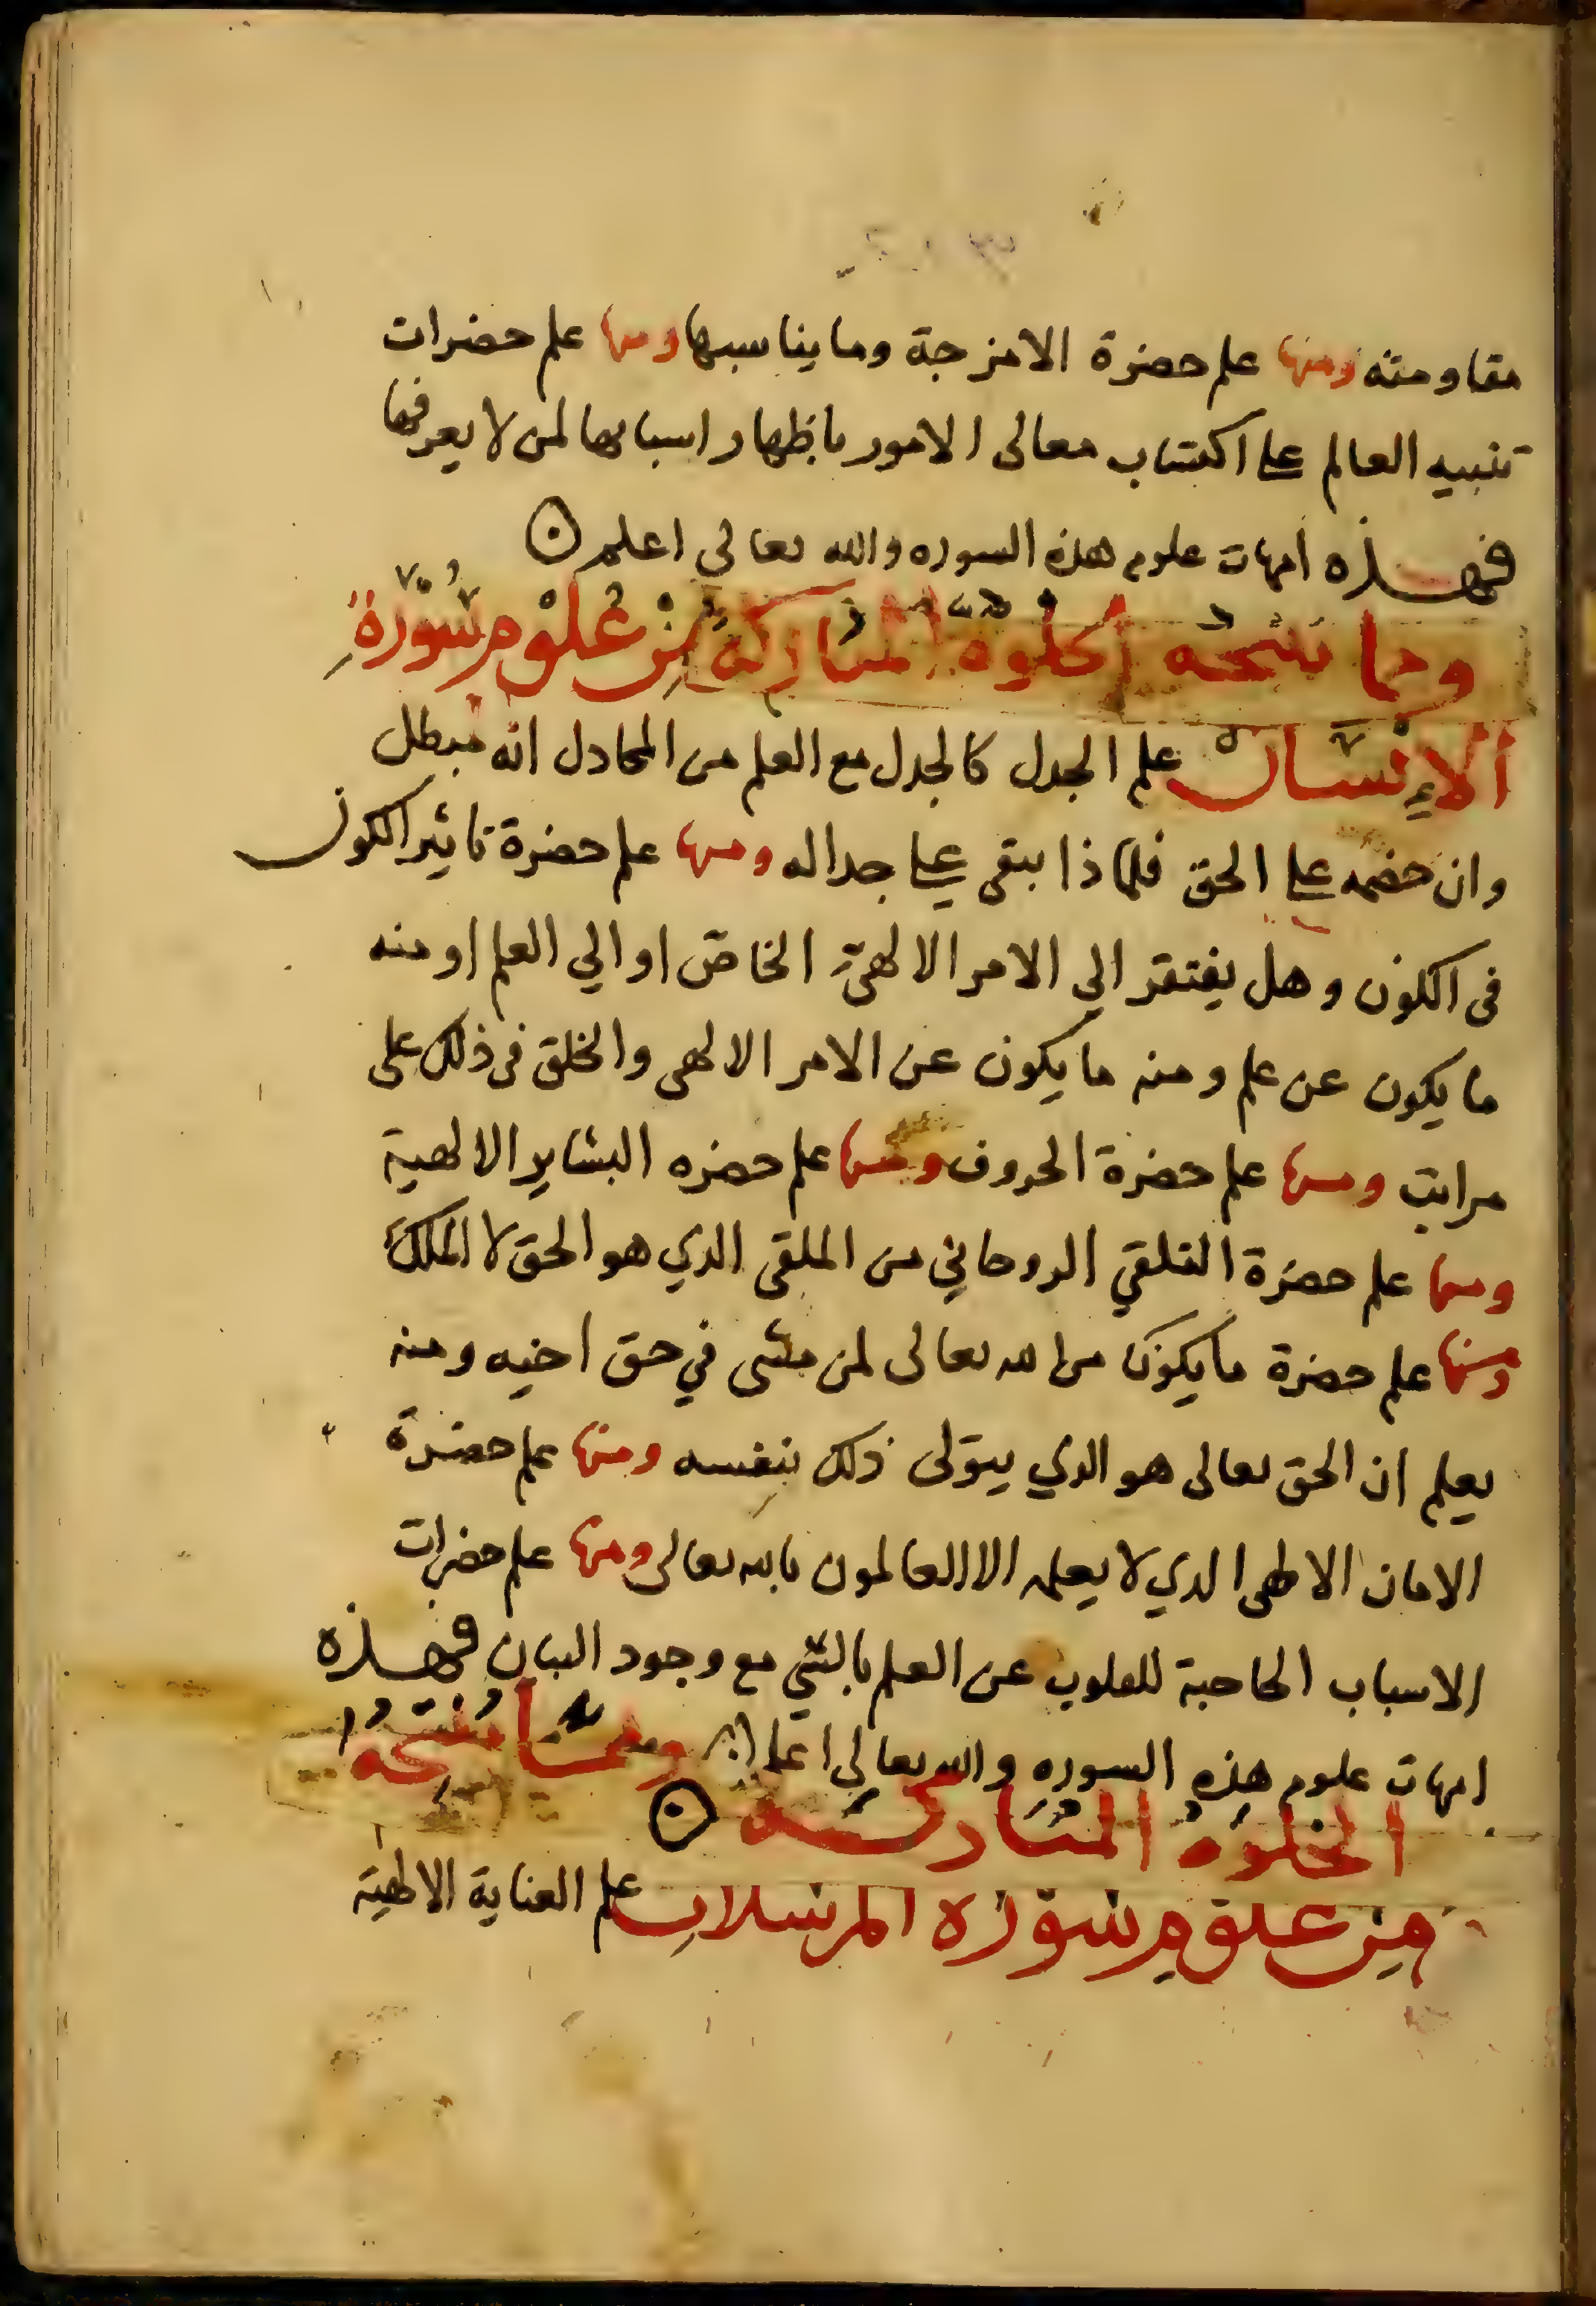 مقاومته ومنها علم حضرة الامزجة وما يناسبها ومنها علم حضرات
تنبيه العالم على اكتساب معالى الامور باظهار اسبابها لمن لا يعرفها
فهذه امهات علوم هذه السوره والله تعالى اعلم
ومما تنتجه الخلوة المباركة من علوم سورة
الإنسان علم الجدل كالجدل مع العلم من المجادل انه مبطل
وان خصمه على الحق فلماذا يبقى على جداله ومنها علم حضرة تاثير الكون
فى الكون وهل يفتقر الي الامر الالهيّ الخاصّ او الي العلم او منه
ما يكون عن علم ومنه ما يكون عن الامر الالهى والخلق فى ذلك على
مراتب ومنها علم حضرة الحروف ومنها علم حضره البشاير الالهية
ومنها علم حضرة التلقي الروحاني من الملقى الذي هو الحق لا الملك
ومنها علم حضرة ما يكون من الله تعالى لمن مشى في حق اخيه ومنه
يعلم ان الحق تعالى هو الذي يتولى ذلك بنفسه ومنها علم حضرة
الامان الالهى الذي لا يعلمه الا العالمون بالله تعالى ومنها علم حضرات
الاسباب الحاجبة للقلوب عن العلم بالشي مع وجود البيان فهذه
امهات علوم هذه السوره والله تعالى اعلم ومما تنتجه
الخلوة المباركة
من علوم سورة المرسلات علم العناية الالهية